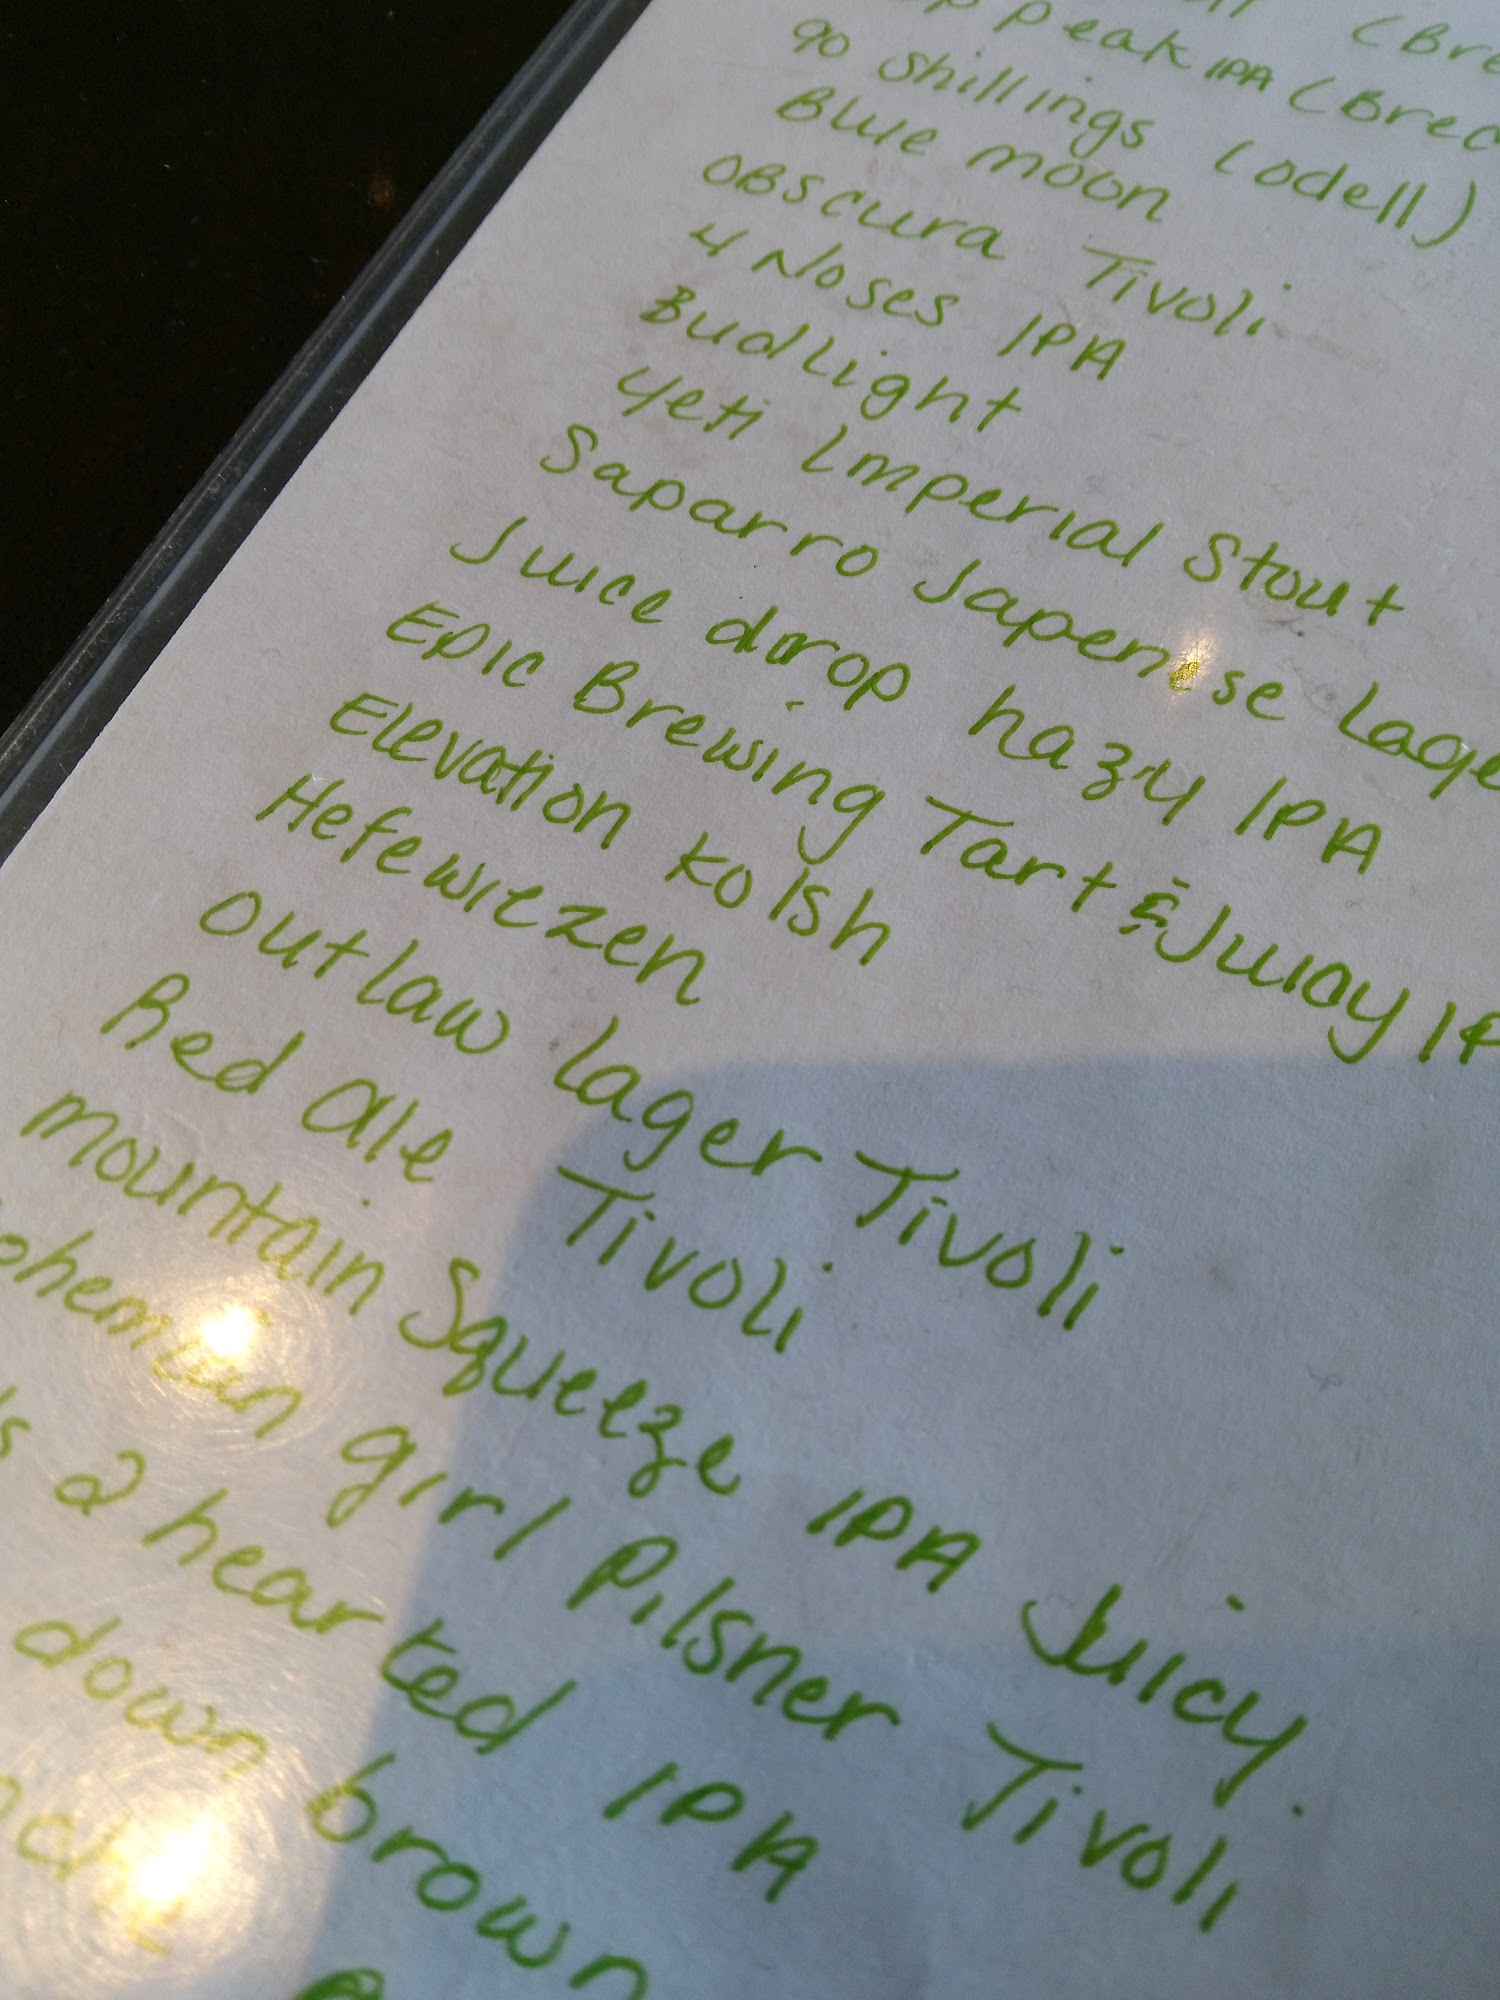 peak IPA (Brec
90 Shillings (odell)
Blue moon
OBSCURA Tivoli
4 Noses IPA
BudLight
Yeti Imperial Stout
Saparro Japenese Lage
Juice drop hazy IPA
EPIC Brewing Tart & Juicy IP
Elevation Kolsh
Hefewiezen
Outlaw Lager Tivoli
Red Ale Tivoli
Mountain Squeeze IPA Juicy.
oheman girl Pilsner Tivoli
s 2 hearted IPA
down brown